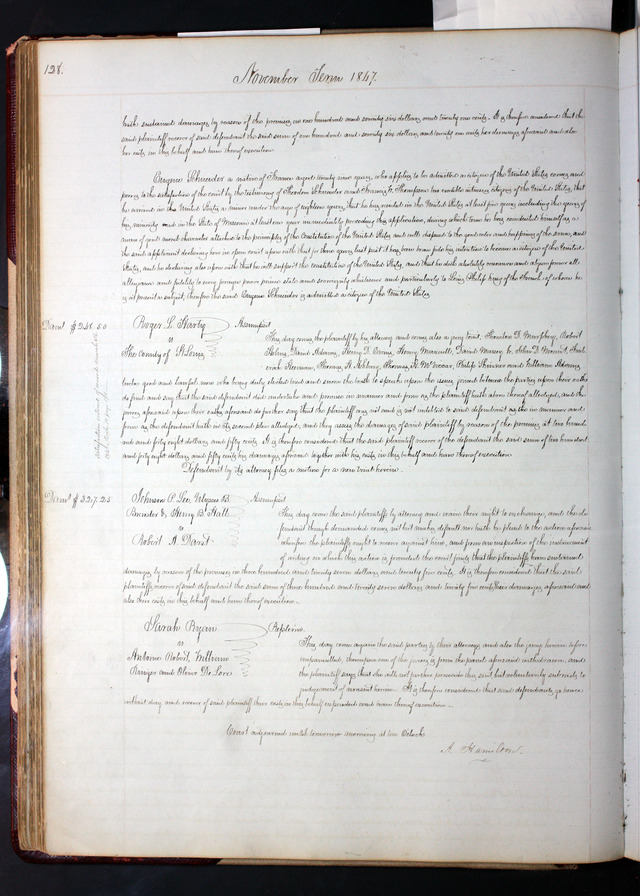 128.
November Term 1847.
hath sustained damages by reason of the premises, one hundred and seventy six dollars and twenty one cents. It is therefore considered that the
said plaintiff recover of said defendant the said sum of one hundred and seventy six dollars and twenty one cents, her damages aforesaid and also
her costs in this behalf and have thereof execution
Eugene Schneider a native of France aged twenty one years, who applies to be admitted a citizen of the United States, comes and
proves to the satisfaction of the court by the testimony of Theodore Schneider and Francis Thompson two credible witnesses, citizens of the United States, that
he arrived in the United States a minor under the age of eighteen years, that he has resided in the United States at least five years including the years of
his minority and in the State of Missouri at least one year immediately preceding this application, during which time he has conducted himself as a
man of good moral character attached to the principles of the Constitution of the United States and well disposed to the good order and happiness of the same, and
the said applicant declaring here in open court upon oath that for three years last past it has been bona fide his intention to become a citizen of the United
States, and he declaring also upon oath that he will support the constitution of the United States, and that he doth absolutely renounce and abjure forever all
allegiance and fidelity to every foreign power prince state and sovereignty whatsoever and particularly to Louis Philip King of the French of whom he
is at present a subject, therefore the said Eugene Schneider is admitted a citizen of the United States
Dam. $ 248.50
Roger L. Assumpsit
vs
The County of St Louis
This day come the plaintiff by his attorney and comes also a jury to wit, D. Murphy, Robert
David Adams, Henry D. Henry David
Thomas Thomas Philip and William Adams
twelve good and lawful men who being duly elected tried and sworn the truth to speak upon the issues joined between the parties upon their oaths
do find and say that the said defendant did undertake and promise in manner and form as the plaintiff hath above thereof alleged, and the
jurors aforesaid upon their oaths aforesaid do further say that the plaintiff was not and is not indebted to said defendant in the manner and
form as the defendant hath in its second plea alleged, and they assess the damages of said plaintiff by reason of the premises at two hundred
and forty eight dollars and fifty cents. It is therefore considered that the said plaintiff recover of the defendant the said sum of two hundred
and forty eight dollars and fifty cents his damages aforesaid together with his costs in this behalf and have thereof execution.
Defendant by its attorney files a motion for a new trial herein.
Dam. $ 327.25
Johnson P. Lee, B. Assumpsit
Browder & Henry B. Hill
vs
Robert A. David
This day come the said plaintiffs by attorney and this
defendant though demanded comes not but makes default nor hath he plead to the action aforesaid
wherefore the plaintiffs ought to recover against him, and from an inspection of the instrument
of writing on which this action is founded the court finds that the plaintiffs have sustained
damages by reason of the premises, three hundred and twenty seven dollars, and twenty five cents. It is therefore considered that the said
plaintiffs recover of said defendant the said sum of three hundred and twenty seven dollars, and twenty five cents their damages aforesaid and
also their costs in this behalf and have thereof execution.
Sarah Ryan Replevin.
vs
Antoine Robert, William
and
This day come again the said parties by their attorneys and also the jury herein before
empannelled, thereupon one of the jurors is from the panel aforesaid withdrawn, and
the plaintiff says that she will not further prosecute this suit but voluntarily submits to
judgement of nonsuit herein. It is therefore considered that said defendants go hence
without day and recover of said plaintiff their costs in this behalf expended and have thereof execution.
Court adjourned until tomorrow morning at ten Oclock
A. Hamilton.